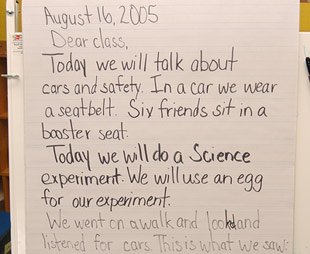 August 16, 2005
Dear class,
Today we will talk about
cars and safety. In a car we wear
a seatbelt. Six friends sit in a
booster seat.
Today we will do a Science
experiment. We will use an egg
for our experiment.
We went on a walk and looked and
listened for cars. This is what we saw: